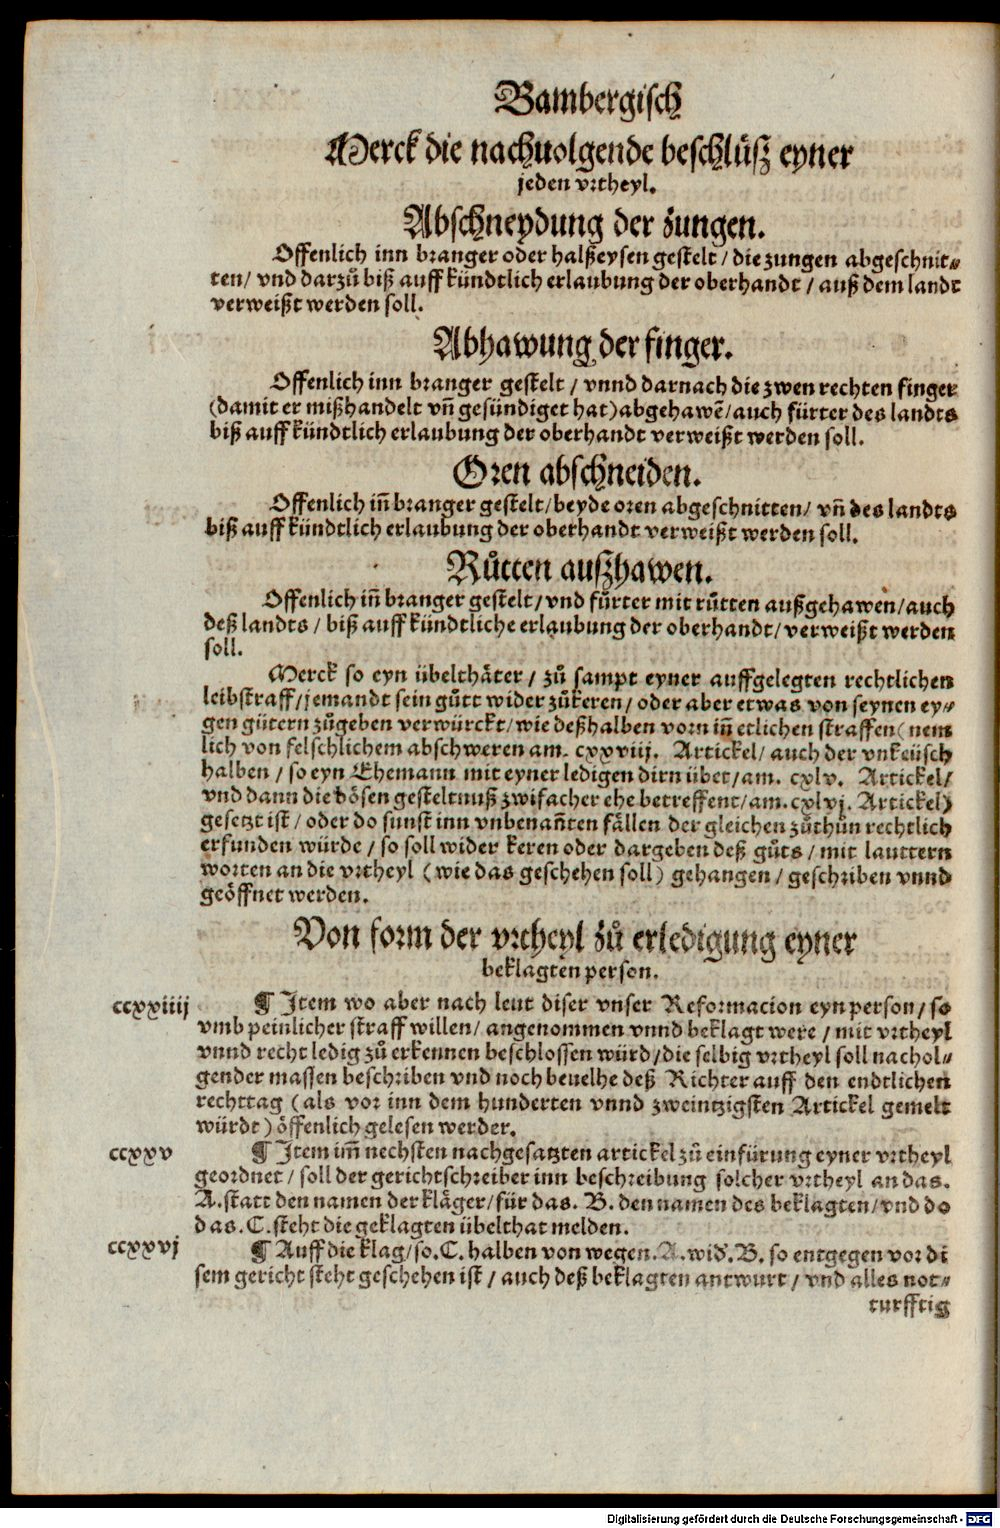 Bambergisch
Merck die nachuolgende beschlüsz eyner
jeden vrtheyl.
Abschneydung der zungen.
Offenlich inn branger oder halßeysen gestelt / die zungen abgeschnit-
ten / vnd darzů biß auff kündtlich erlaubung der oberhandt / auß dem landt
verweißt werden soll.
Abhawung der finger.
Offenlich inn branger gestelt / vnnd darnach die zwen rechten finger
(damit er mißhandelt vñ gesündiget hat) abgehawẽ / auch fürter des landts
biß auff kündtlich erlaubung der oberhandt verweißt werden soll.
Oren abschneiden.
Offenlich iñ branger gestelt / beyde oren abgeschnitten / vñ des landts
biß auff kündtlich erlaubung der oberhandt verweißt werden soll.
Růtten außhawen.
Offenlich iñ branger gestelt / vnd fürter mit růtten außgehawen / auch
deß landts / biß auff kündtliche erlaubung der oberhandt / verweißt werden
soll.
Merck so eyn übelthäter / zů sampt eyner auffgelegten rechtlichen
leibstraff / jemandt sein gůtt wider zůkeren / oder aber etwas von seynen ey-
gen gütern zůgeben verwürckt / wie deßhalben vorn iñ etlichen straffen (nem
lich von felschlichem abschweren am. cxxviij. Artickel / auch der vnkeüsch
halben / so eyn Ehemann mit eyner ledigen dirn übet / am. cxlv. Artickel /
vnd dann die bösen gesteltnuß zwifacher ehe betreffent / am. cxlvj. Artickel)
gesetzt ist / oder do sunst inn vnbenañten fällen der gleichen zůthůn rechtlich
erfunden würde / so soll wider keren oder dargeben deß gůts / mit lauttern
worten an die vrtheyl (wie das geschehen soll) gehangen / geschriben vnnd
geöffnet werden.
Von form der vrtheyl zů erledigung eyner
beklagten person.
ccxxiiij ¶ Item wo aber nach leut diser vnser Reformacion eyn person / so
vmb peinlicher straff willen / angenommen vnnd beklagt were / mit vrtheyl
vnnd recht ledig zů erkennen beschlossen würd / die selbig vrtheyl soll nachol-
gender massen beschriben vnd noch beuelhe deß Richter auff den endtlichen
rechttag (als vor inn dem hunderten vnnd zweintzigsten Artickel gemelt
würdt) öffenlich gelesen werder.
ccxxv ¶ Item im̃ nechsten nachgesatzten artickel zů einfürung eyner vrtheyl
geordnet / soll der gerichtschreiber inn beschreibung solcher vrtheyl an das.
A. statt den namen der kläger / für das. B. den namen des beklagten / vnd do
das. C. steht die geklagten übelthat melden.
ccxxvj ¶ Auff die klag / so. C. halben von wegen. A. wid̃. B. so entgegen vor di
sem gericht steht geschehen ist / auch deß beklagten antwurt / vnd alles not-
turfftig
Digitalisierung gefördert durch die Deutsche Forschungsgemeinschaft - DFG